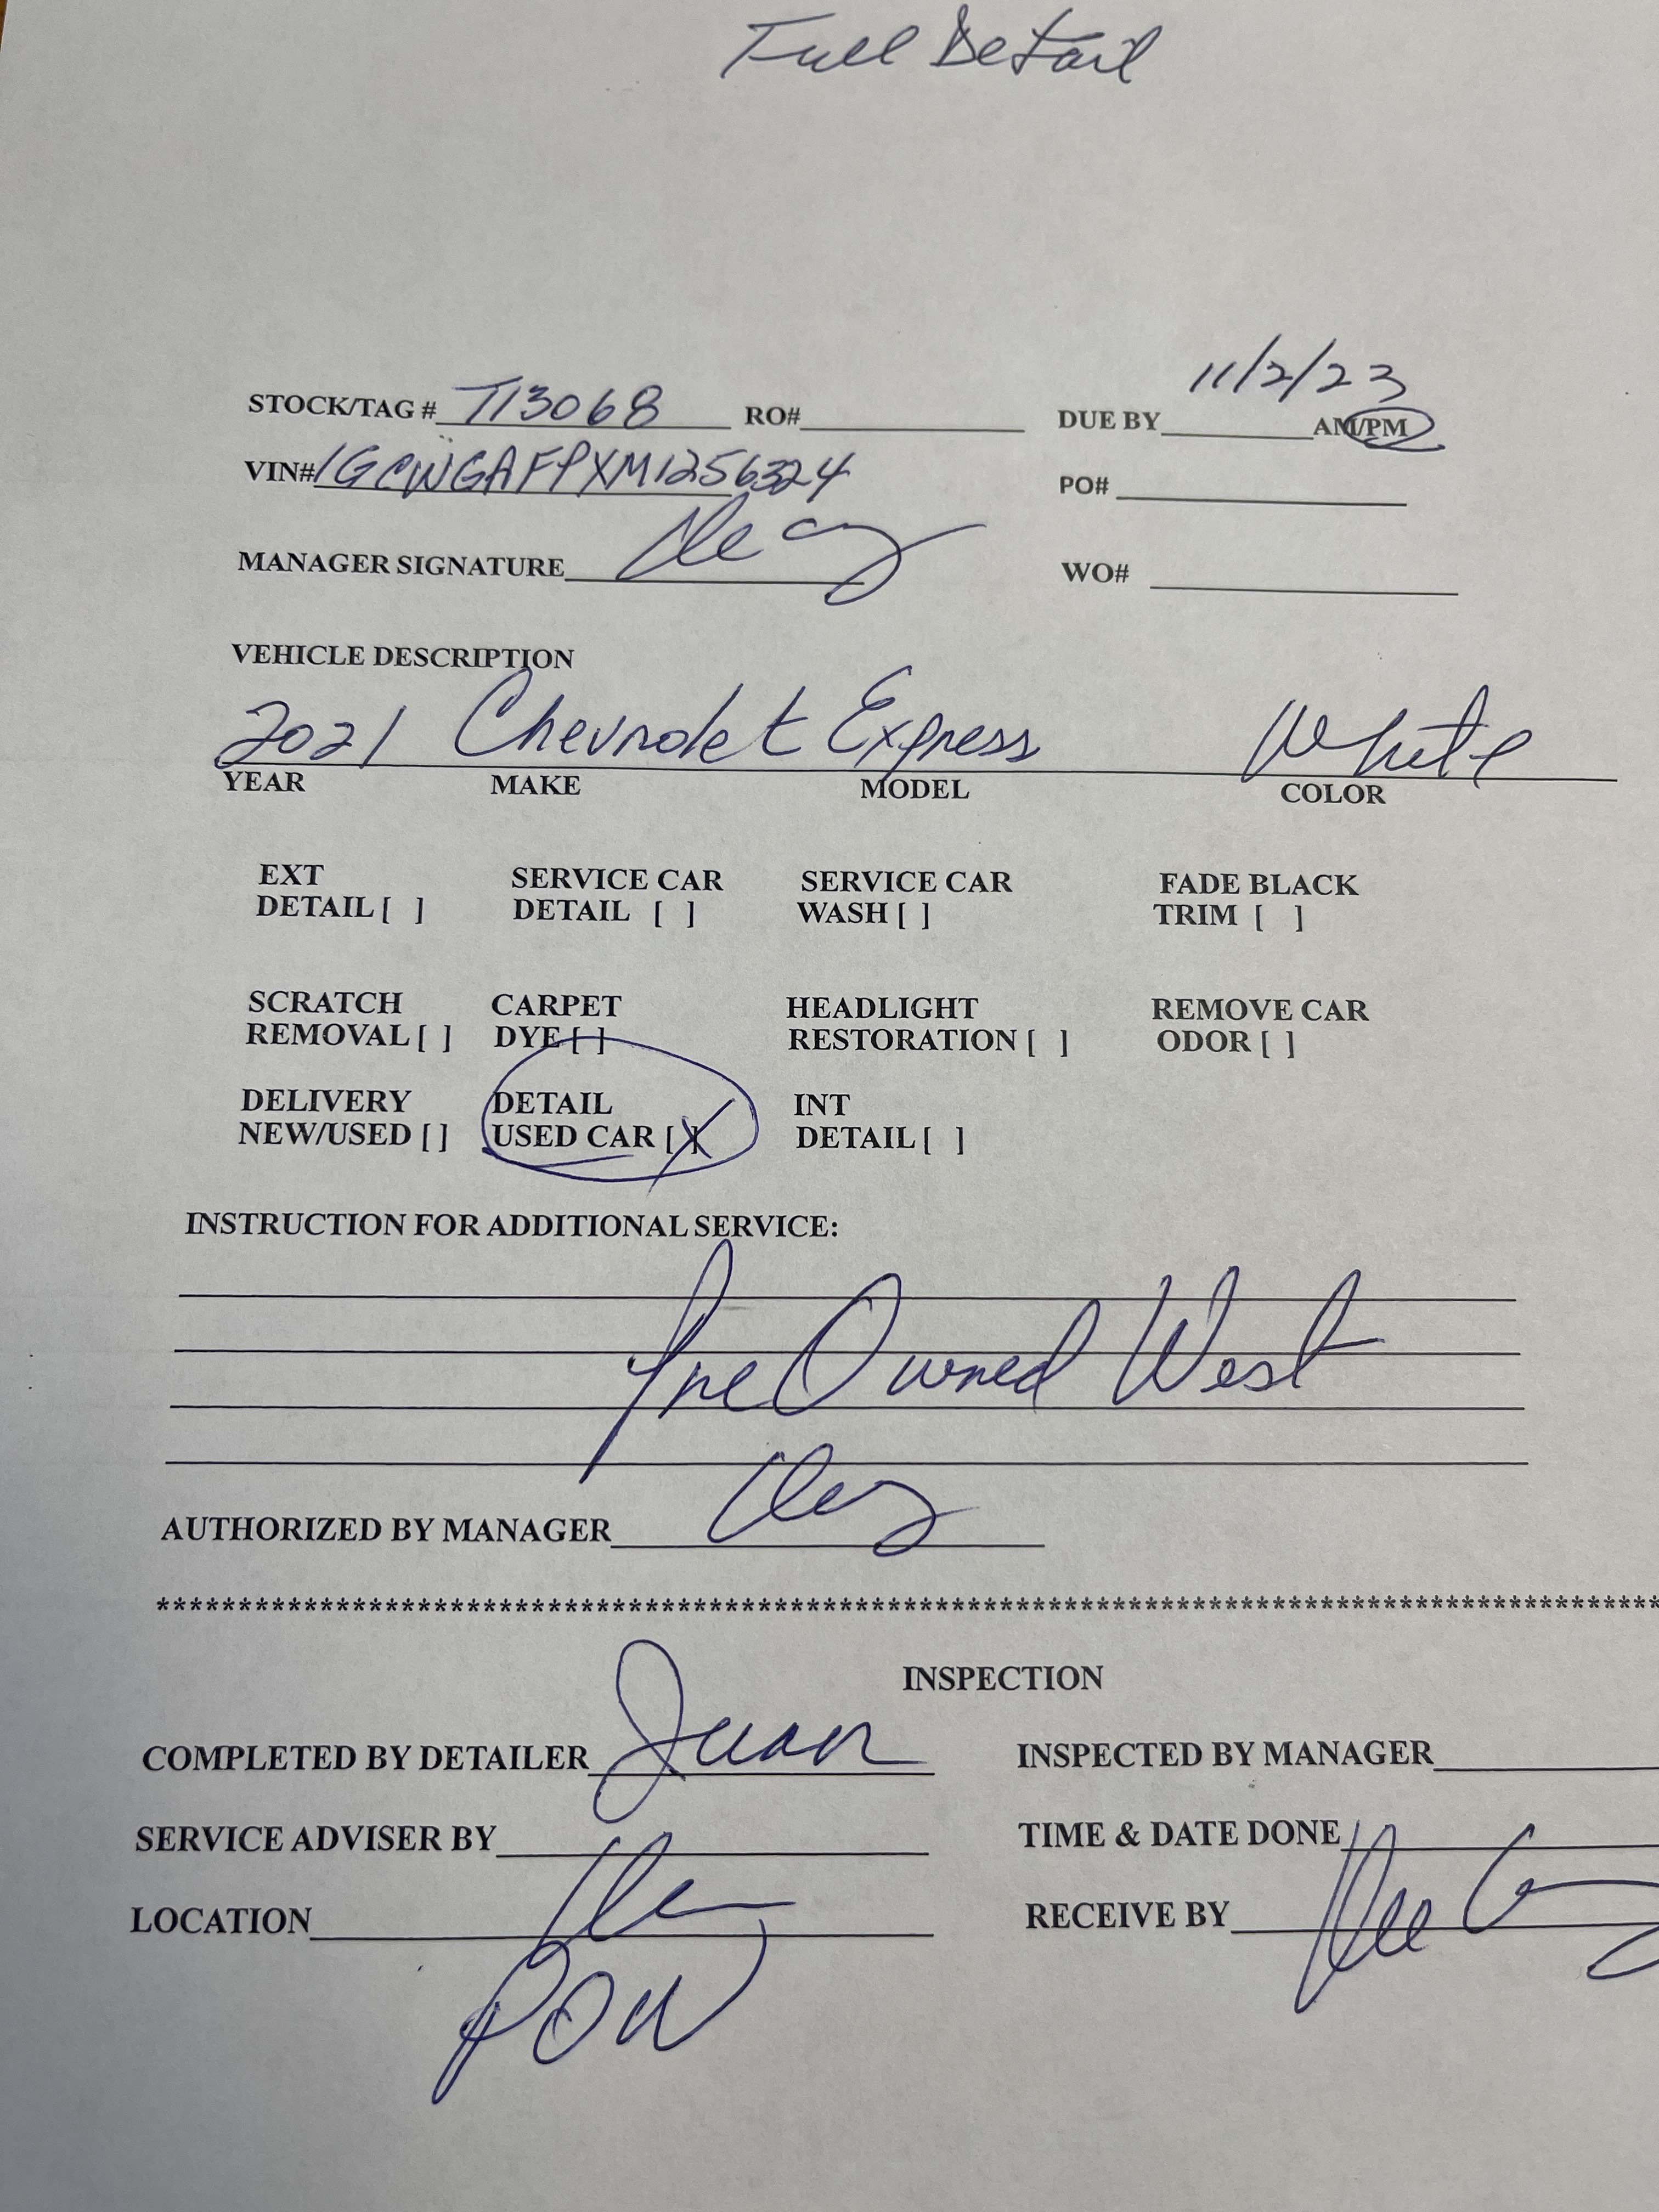 Full Detail
11/2/23
STOCK/TAG # T13068 RO# DUE BY AM/PM
VIN# 1GCWGAFPXM1256324 PO#
MANAGER SIGNATURE WO#
VEHICLE DESCRIPTION
2021 Chevrolet Express White
YEAR MAKE MODEL COLOR
EXT SERVICE CAR SERVICE CAR FADE BLACK
DETAIL [ ] DETAIL [ ] WASH [ ] TRIM [ ]
SCRATCH CARPET HEADLIGHT REMOVE CAR
REMOVAL [ ] DYE [ ] RESTORATION [ ] ODOR [ ]
DELIVERY DETAIL INT
NEW/USED [ ] USED CAR [X] DETAIL [ ]
INSTRUCTION FOR ADDITIONAL SERVICE:
Pre Owned West
AUTHORIZED BY MANAGER
********************************************************************************************
INSPECTION
COMPLETED BY DETAILER Juan INSPECTED BY MANAGER
SERVICE ADVISER BY TIME & DATE DONE
LOCATION RECEIVE BY
POW